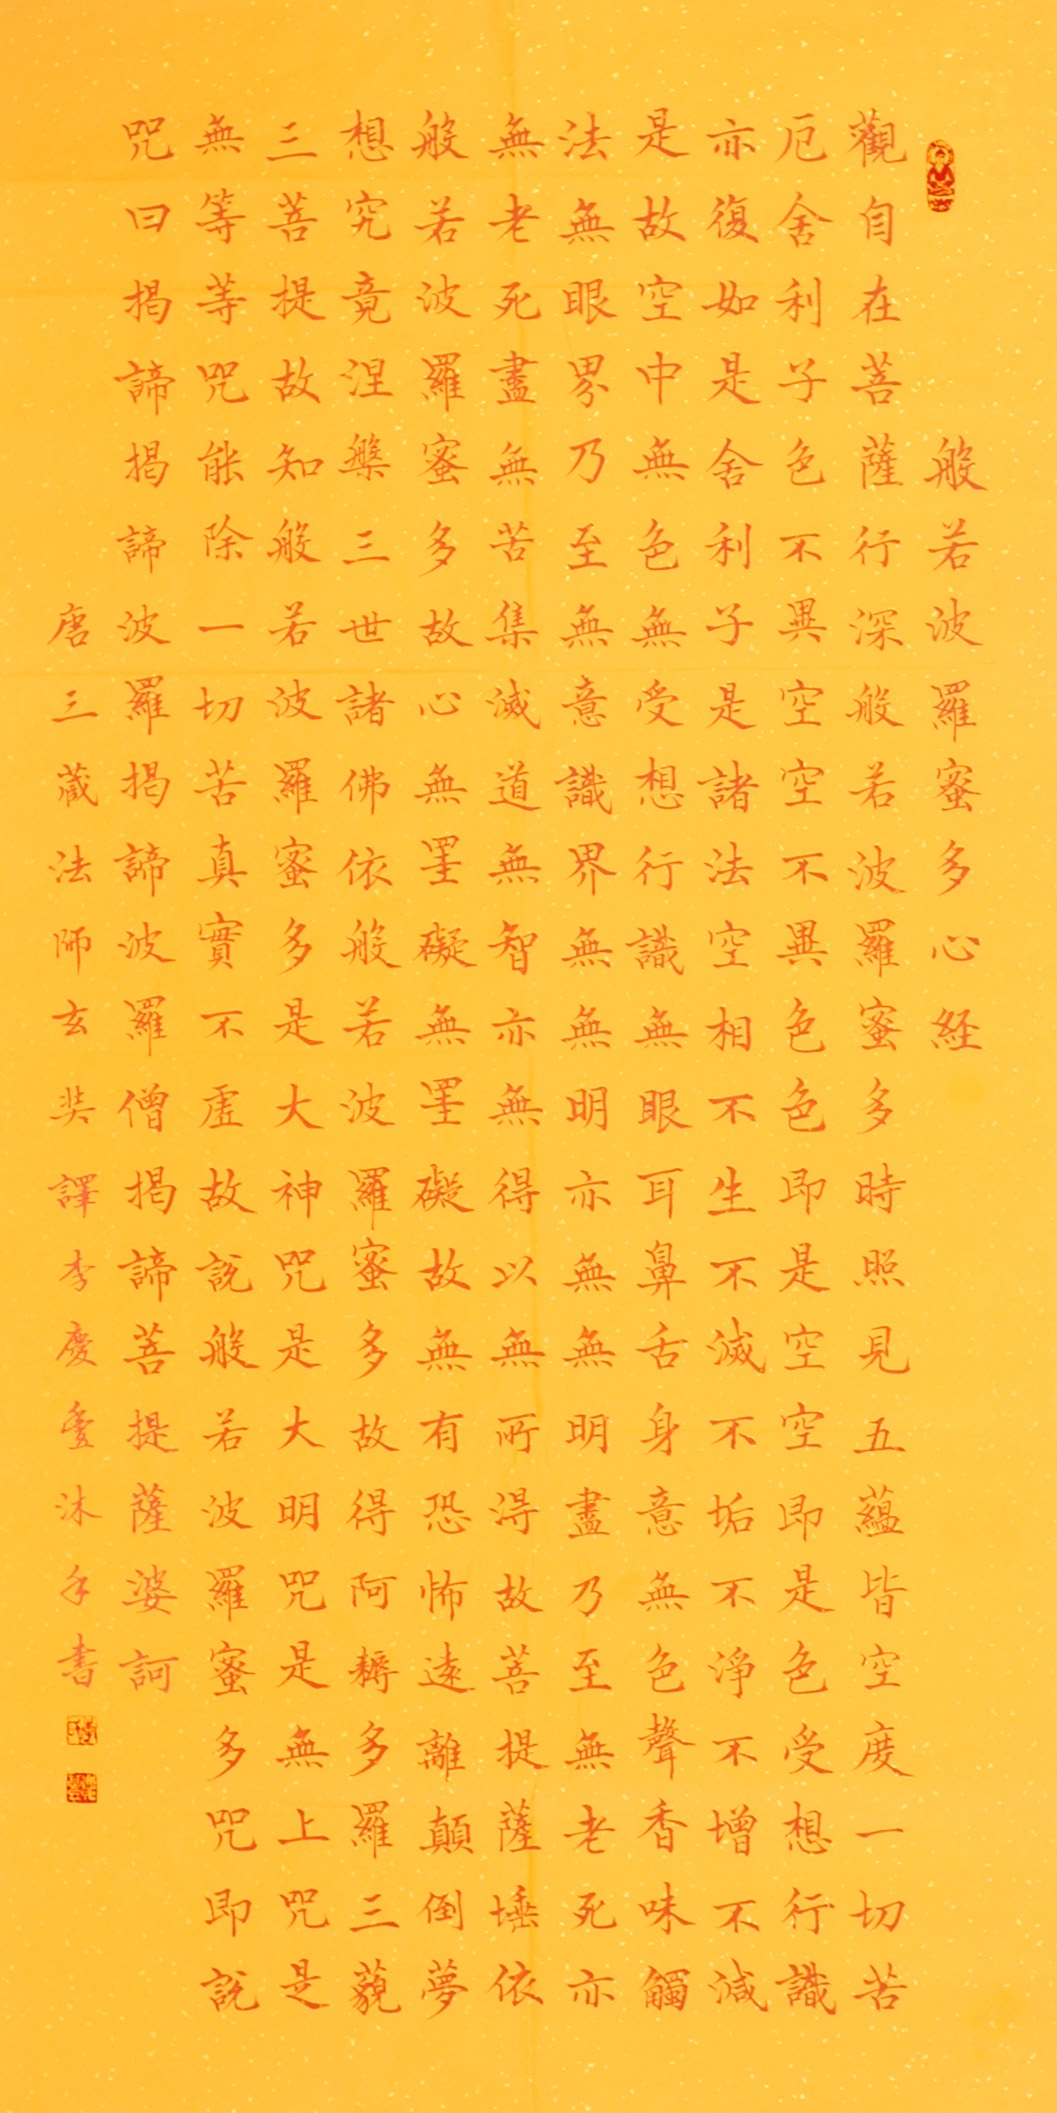 般若波羅蜜多心経
觀自在菩薩行深般若波羅蜜多時照見五蘊皆空度一切苦
厄舍利子色不異空空不異色色即是空空即是色受想行識
亦復如是舍利子是諸法空相不生不滅不垢不淨不增不減
是故空中無色無受想行識無眼耳鼻舌身意無色聲香味觸
法無眼界乃至無意識界無無明亦無無明盡乃至無老死亦
無老死盡無苦集滅道無智亦無得以無所得故菩提薩埵依
般若波羅蜜多故心無罣礙無罣礙故無有恐怖遠離顛倒夢
想究竟涅槃三世諸佛依般若波羅蜜多故得阿耨多羅三藐
三菩提故知般若波羅蜜多是大神咒是大明咒是無上咒是
無等等咒能除一切苦真實不虛故說般若波羅蜜多咒即說
咒曰揭諦揭諦波羅揭諦波羅僧揭諦菩提薩婆訶
唐三藏法師玄奘譯李慶沐手書